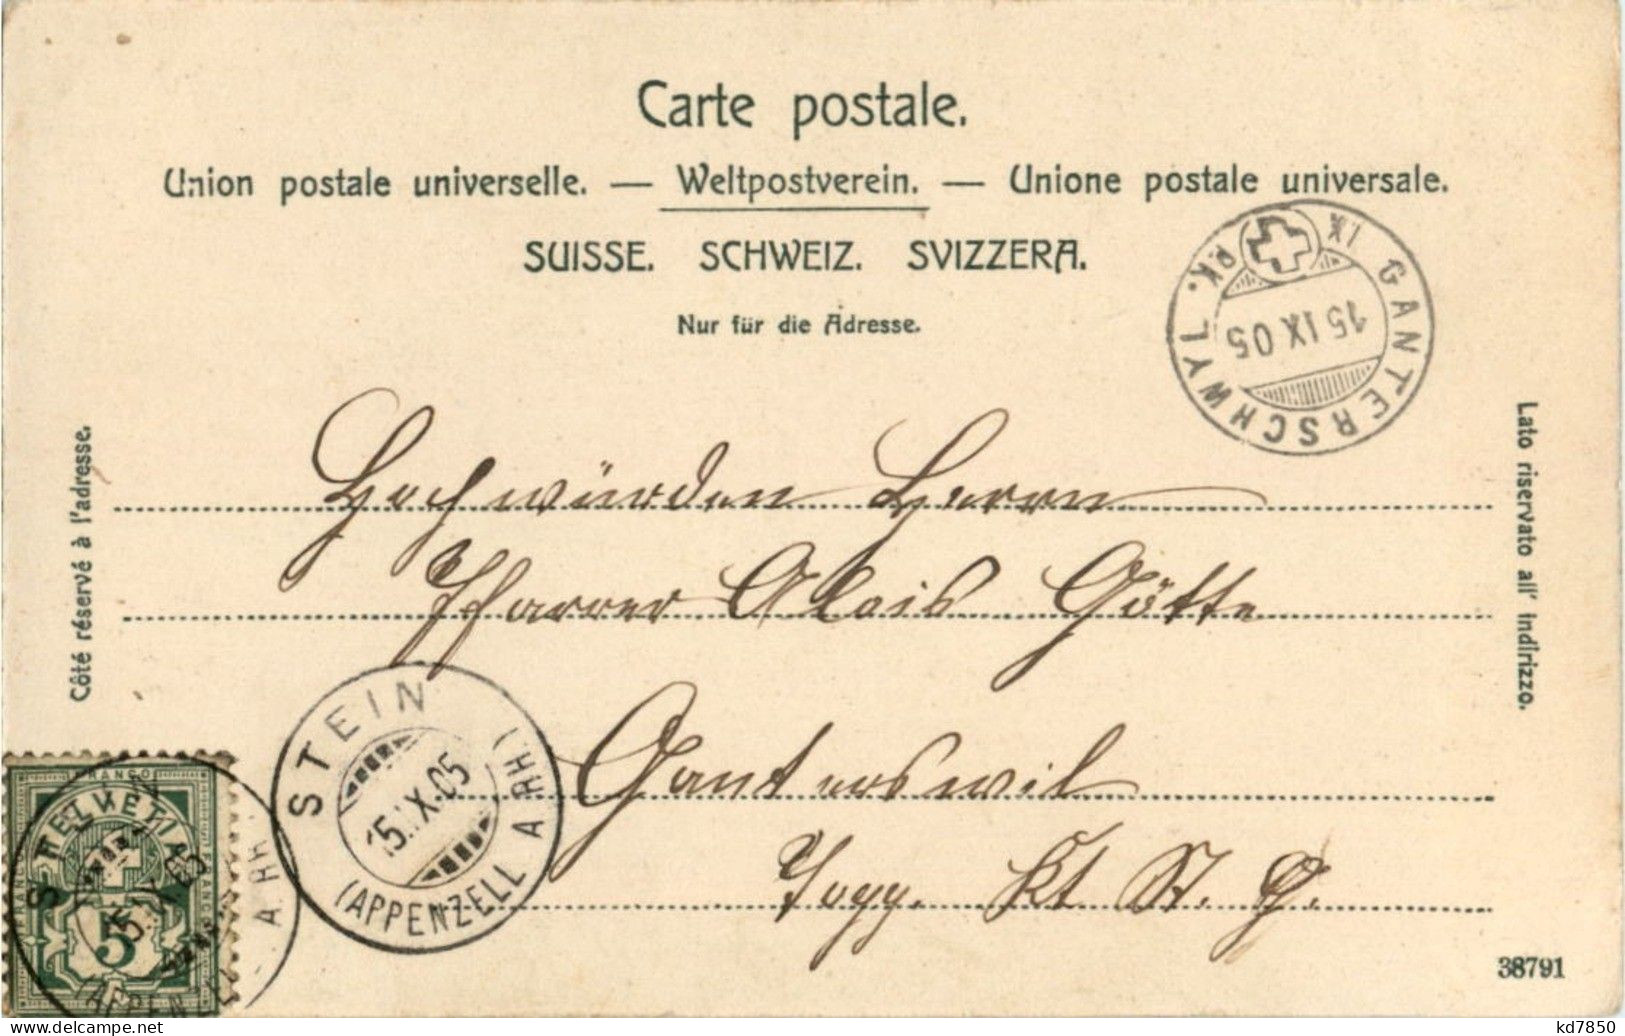 Carte postale.
Union postale universelle. — Weltpostverein. — Unione postale universale.
SUISSE. SCHWEIZ. SVIZZERA.
Nur für die Adresse.
GANTERSCHWYL
15 IX 05
IX
Côté réservé à l'adresse.
Lato riservato all' indirizzo.
Hochwürden Herrn
Pfarrer Alois Götte
Ganterswil
Togg. Kt St. G.
STEIN
15.IX.05
(APPENZELL A.RH.)
FRANCO
HELVETIA
5
38791
www.delcampe.net
kd7850